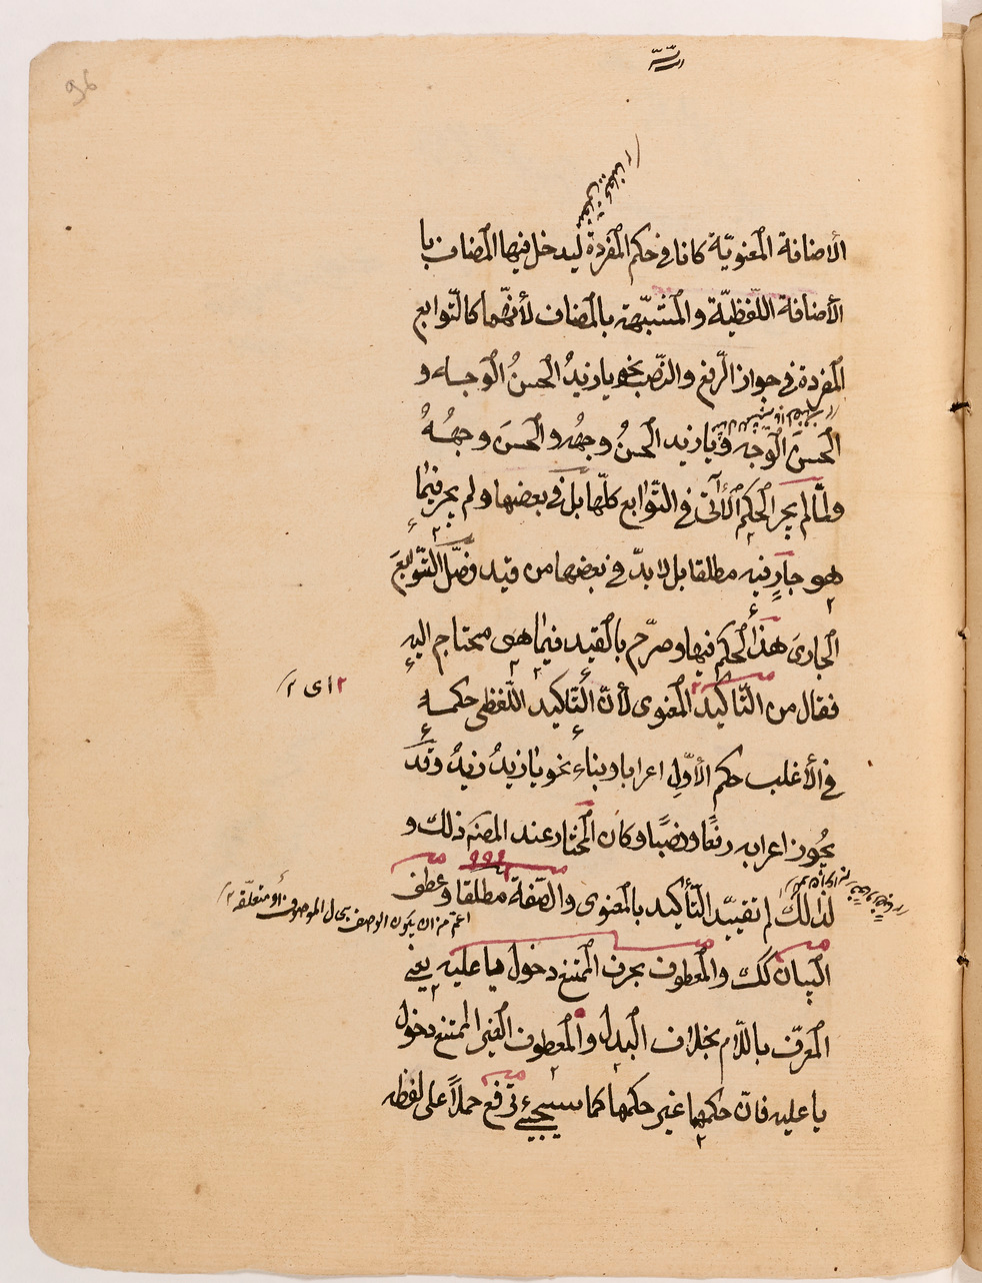 96
الأضافة المعنويّة كانا فى حكم المفردة ليدخل فيها المضاف با
الأضافة اللّفظيّة والمشبّهة بالمضاف لأنّهما كالتّوابع
المفردة فى جواز الرّفع والنّصب نحو يا زيدُ الحسنُ الوجه و
الحسنَ الوجه ويا زيد الحسنُ وجهُه والحسنَ وجهُهُ
ولمّا لم يجر الحكم الأتى فى التّوابع كلّها بل فى بعضها ولم يجر فيما
هو جارٍ فيه مطلقا بل لا بدّ فى بعضها من قيد فصّل التّوابعَ
الجارىَ هذا الحكم فيها وصرّح بالقيد فيما هو محتاج اليه
فقال من التّاكيد المعنوى لأنّ التّاكيد اللّفظى حكمه
٢ اى ٢
فى الأغلب حكم الأوّلِ اعرابا وبناء نحو يا زيدُ زيدُ وقد
يجُوز اعرابه رفعًا ونصبًا وكان المختار عند المصنّف ذلك و
لذلك لم تقيّد التّأكيد بالمعنوى والصّفة مطلقا وعطف
اعمّ من ان يكون الوصف بحال الموصوف أو متعلّقه ٢
البيان كك والمعطوف بحرف الممتنع دخول يا عليه يعنى
المعرّف باللّام بخلاف البدل والمعطوف الغير الممتنع دخول
يا عليه فانّ حكمهما غير حكمها كما سيجيئ ترفع حملاً على لفظه